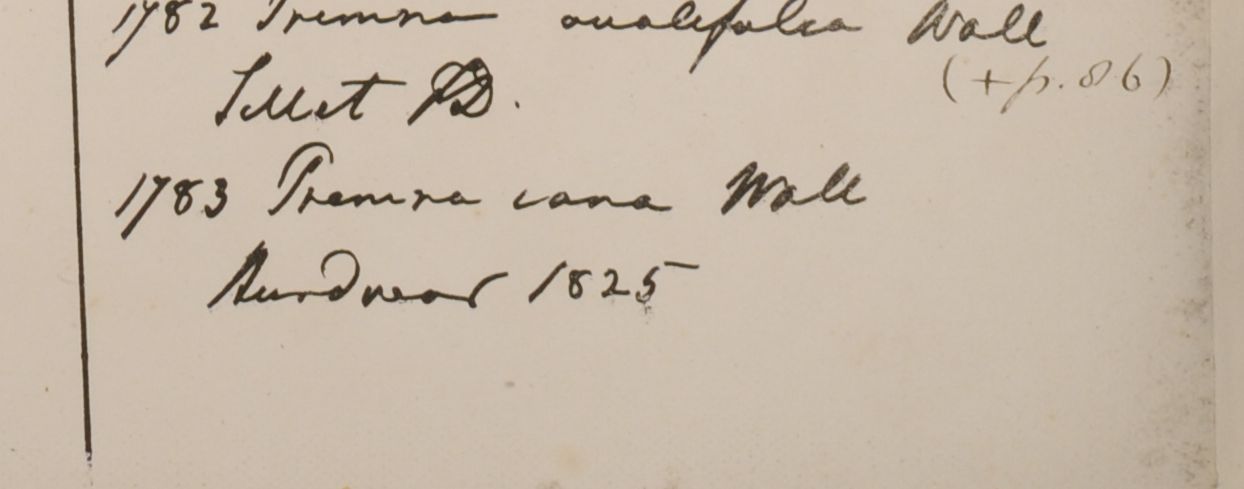 1782 Premna ovalifolia Wall
(+p. 86)
Sillet FD.
1783 Premna cana Wall
Hurdwar 1825